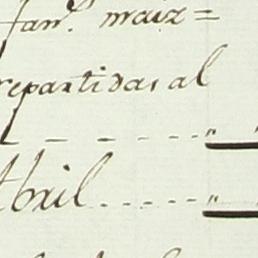 fan.^s maiz =
repartidas al
- - - - - - "
Abril. - - - - - "